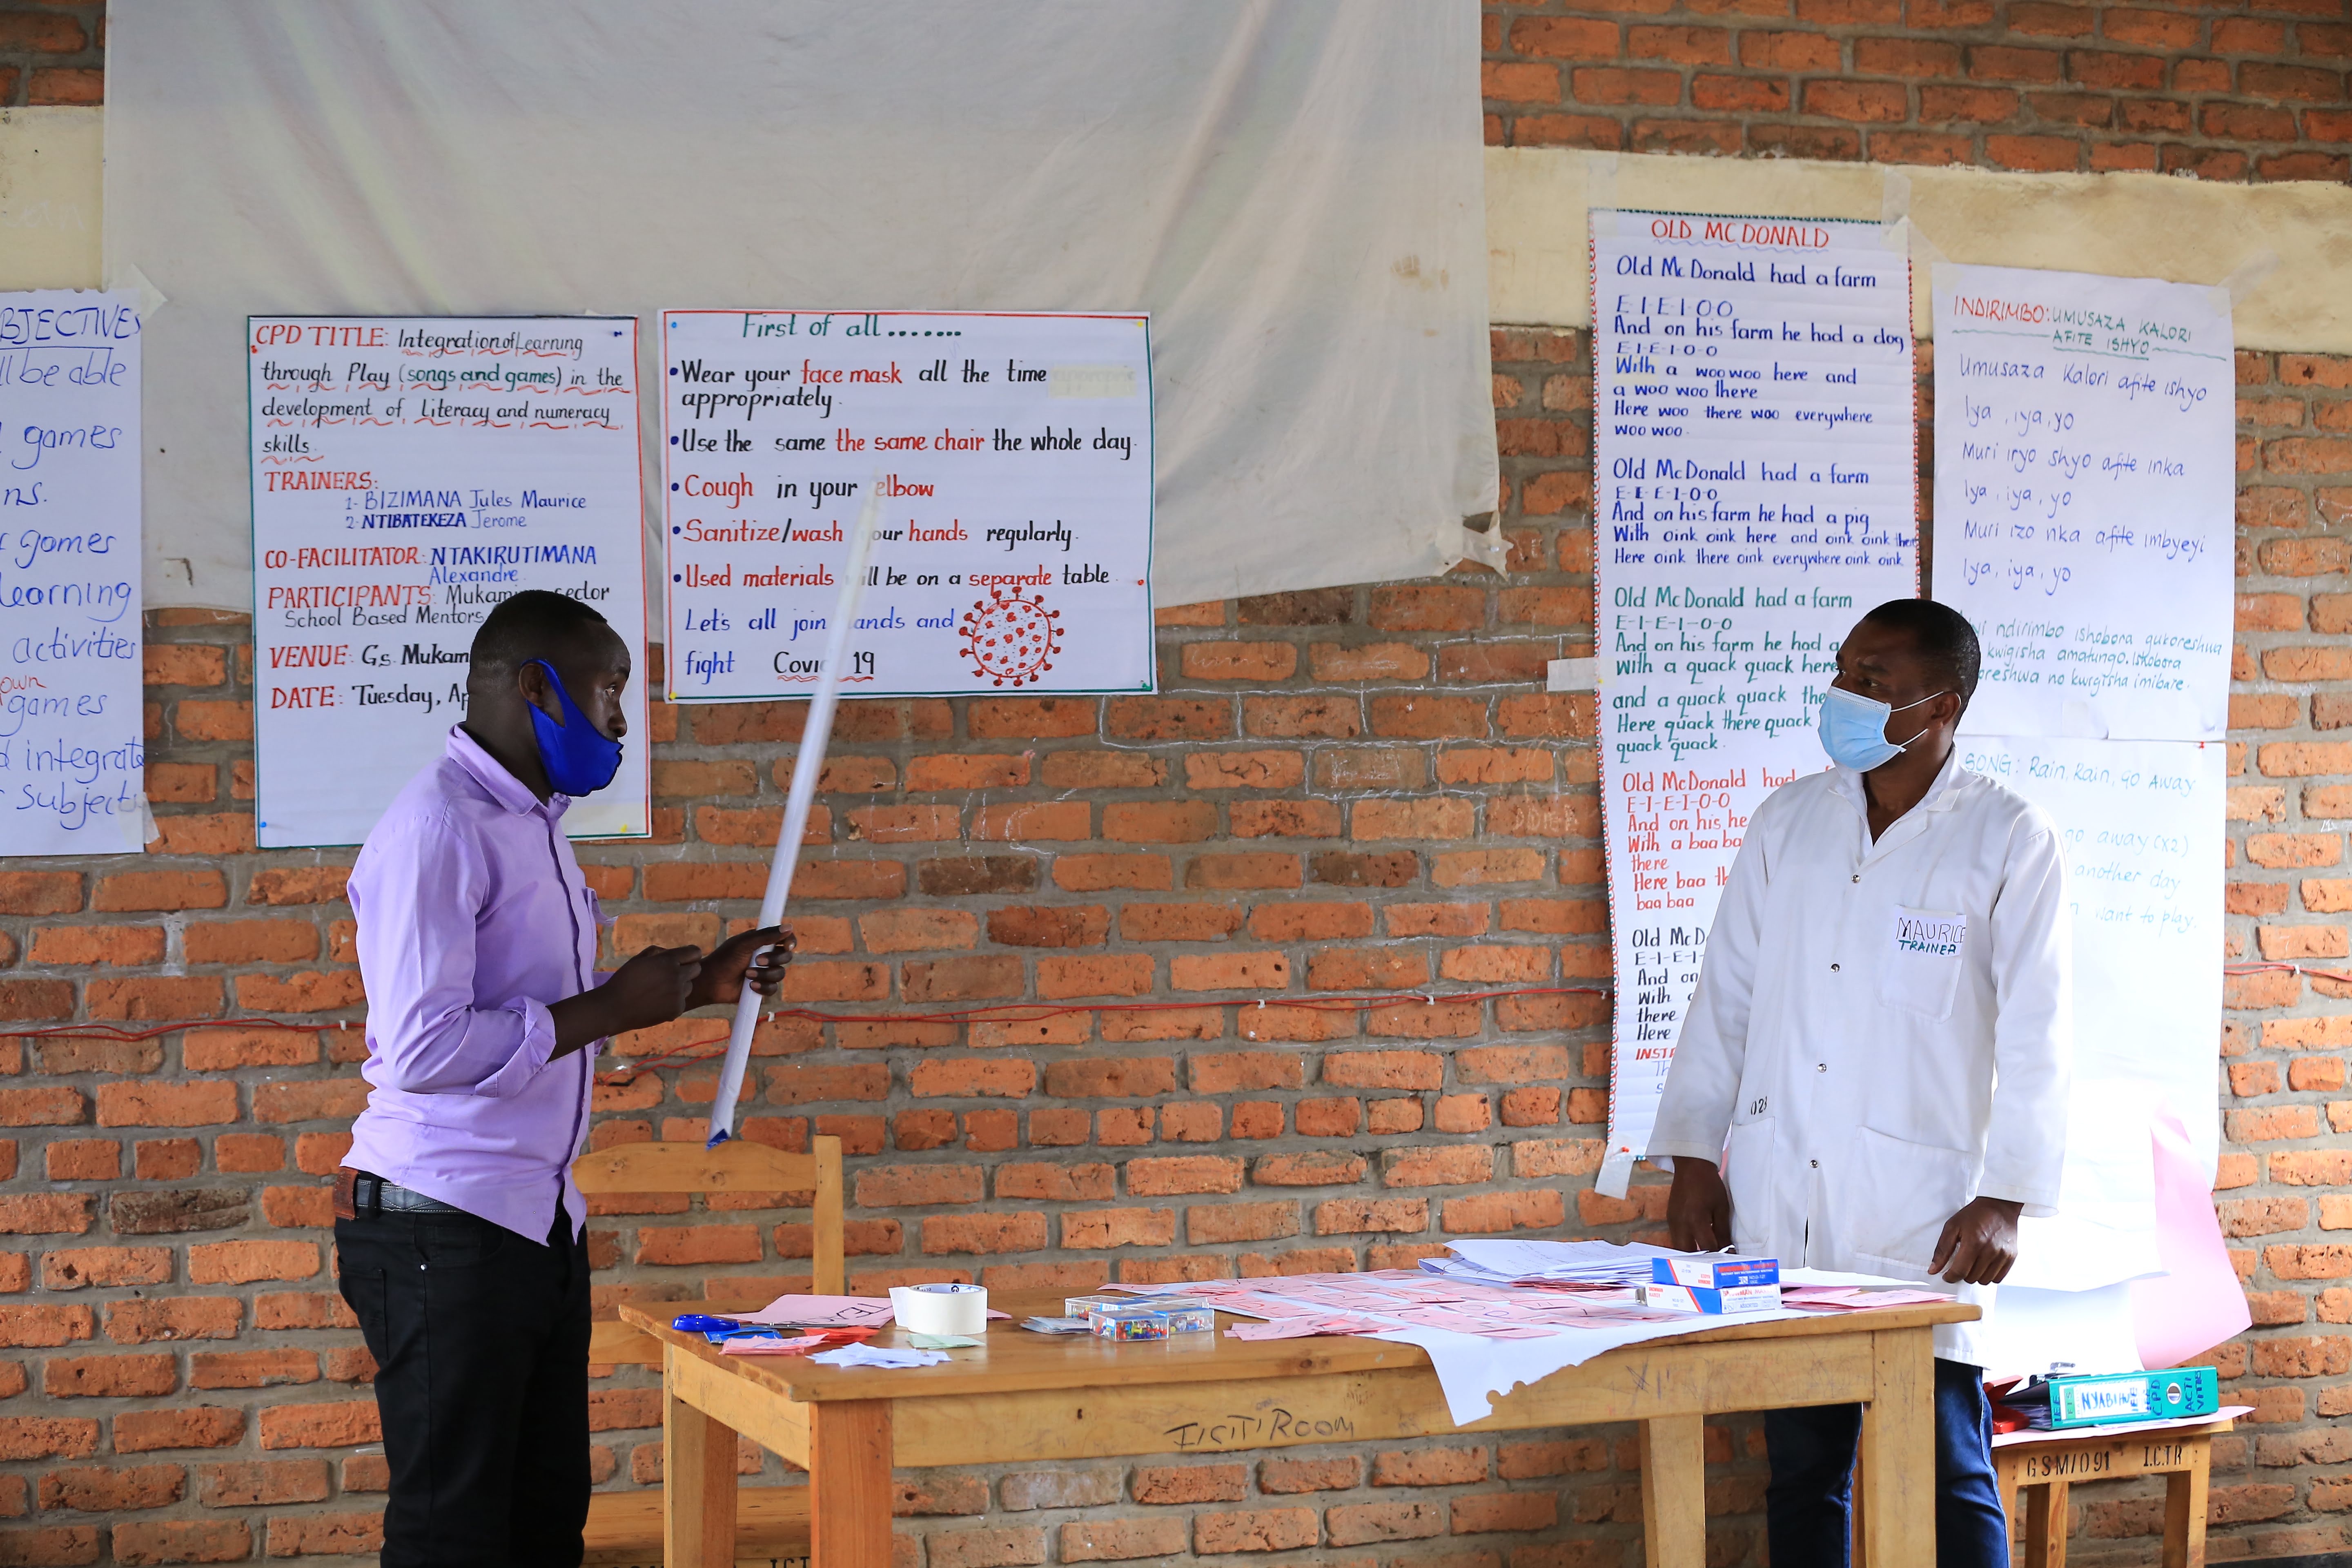 BJECTIVES
ll be able
games
ns.
games
learning
activities
own
games
integrate
subjects
CPD TITLE: Integration of Learning
through Play (songs and games) in the
development of Literacy and numeracy
skills.
TRAINERS:
1- BIZIMANA Jules Maurice
2- NTIBATEKEZA Jerome
CO-FACILITATOR: NTAKIRUTIMANA
Alexandre
PARTICIPANTS: Mukam sector
School Based Mentors
VENUE: Gs. Mukam
DATE: Tuesday, Ap
First of all.......
• Wear your face mask all the time
appropriately.
• Use the same the same chair the whole day.
• Cough in your elbow
• Sanitize/wash your hands regularly.
• Used materials ill be on a separate table.
Let's all join ands and
fight Covi 19
OLD MCDONALD
Old McDonald had a farm
E-I-E-I-O-O
And on his farm he had a dog
E-I-E-I-O-O
With a woo woo here and
a woo woo there
Here woo there woo everywhere
woo woo.
Old McDonald had a farm
E-I-E-I-O-O
And on his farm he had a pig
With oink oink here and oink oink there
Here oink there oink everywhere oink oink
Old McDonald had a farm
E-I-E-I-O-O
And on his farm he had a
With a quack quack here
and a quack quack the
Here quack there quack
quack quack.
Old McDonald had
E-I-E-I-O-O
And on his he
With a baa ba
there
Here baa th
baa baa
Old McD
E-I-E-I-
And on
With
there
Here
INST
Th
INDIRIMBO: UMUSAZA KALORI
AFITE ISHYO
Umusaza Kalori afite ishyo
Iya, iya, yo
Muri iryo shyo afite inka
Iya, iya, yo
Muri izo nka afite imbyeyi
Iya, iya, yo
ndirimbo ishobora gukoreshwa
kwigisha amatungo. Ishobora
oreshwa no kwigisha imibare.
SONG: Rain, Rain, go Away
go away (x2)
another day
want to play.
MAURICE
TRAINER
028
I.C.T ROOM
NYABI
CPD
ACTI
VITIES
GSM/091 I.C.T.R
ICT